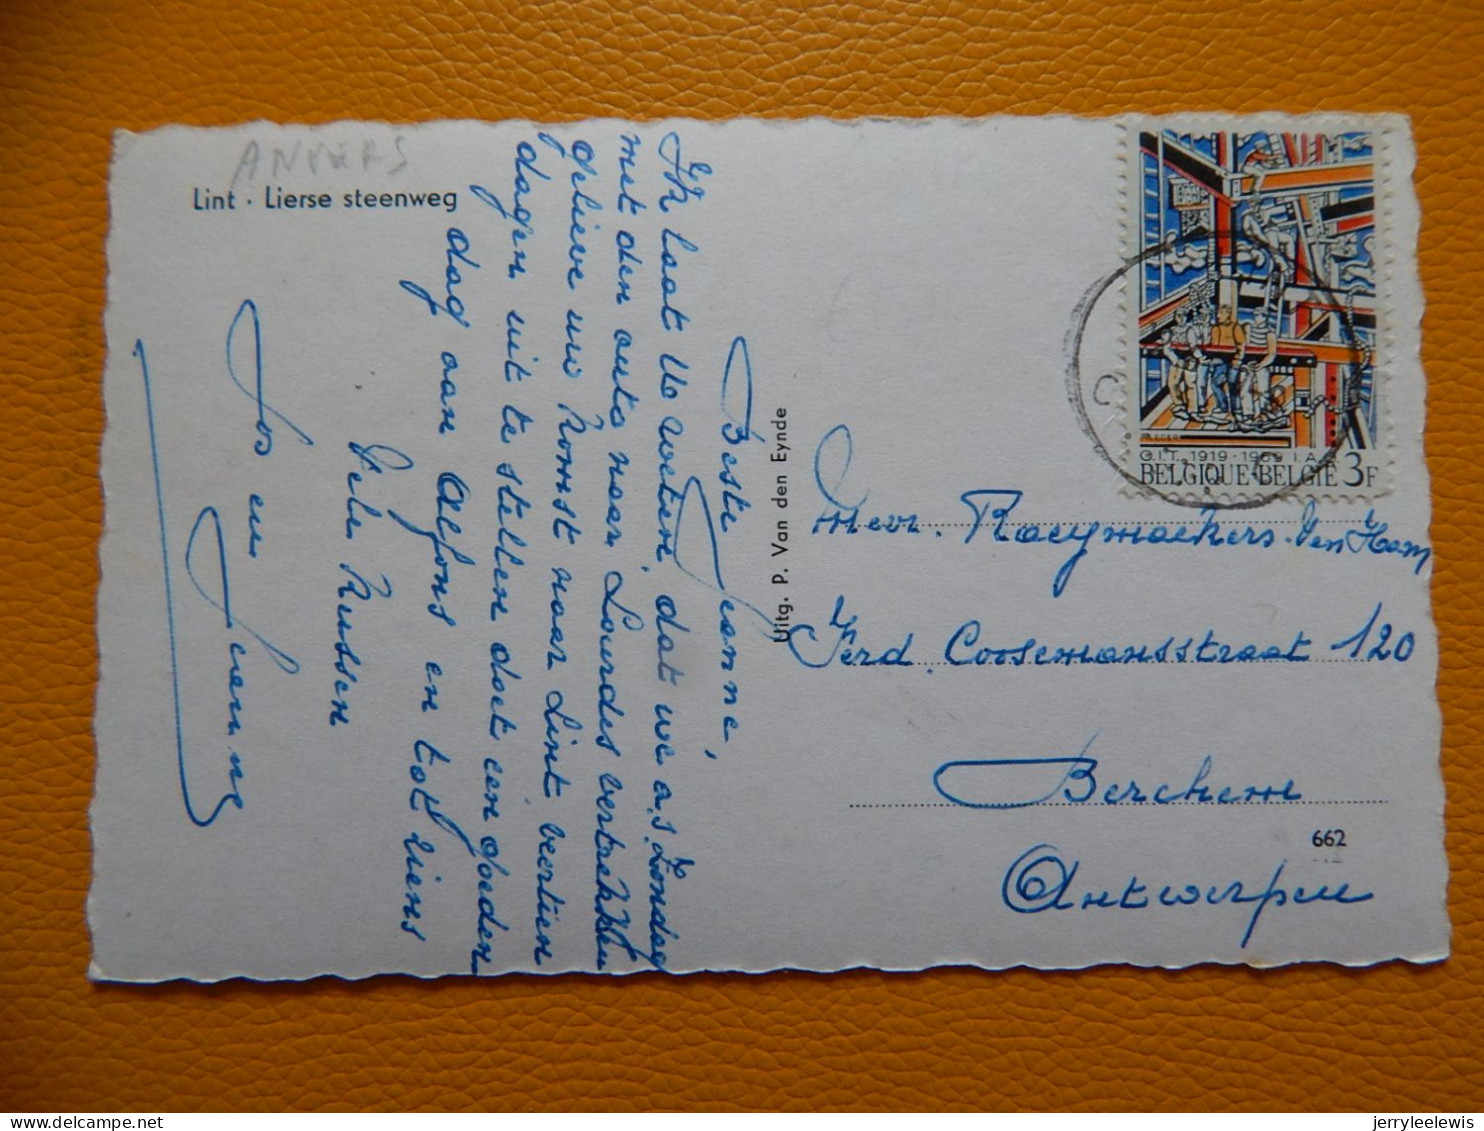 ANVERS
Lint · Lierse steenweg
Beste Jeanne,
Ik laat U weten, dat we a.s. Zondag
met den auto naar Lourdes vertrekken
gelieve uw komst naar Lint veertien
dagen uit te stellen doet een goeden
dag aan Alfons en tot ziens
Vele Kussen
Jos en Jeanne
Uitg. P. Van den Eynde
LEGER
O.I.T. 1919-1969 I.A.O.
BELGIQUE·BELGIË 3F
Mevr. Raeymaekers-Van Ham
Ferd. Coosemansstraat 120
Berchem
Antwerpen
662
jerryleelewis